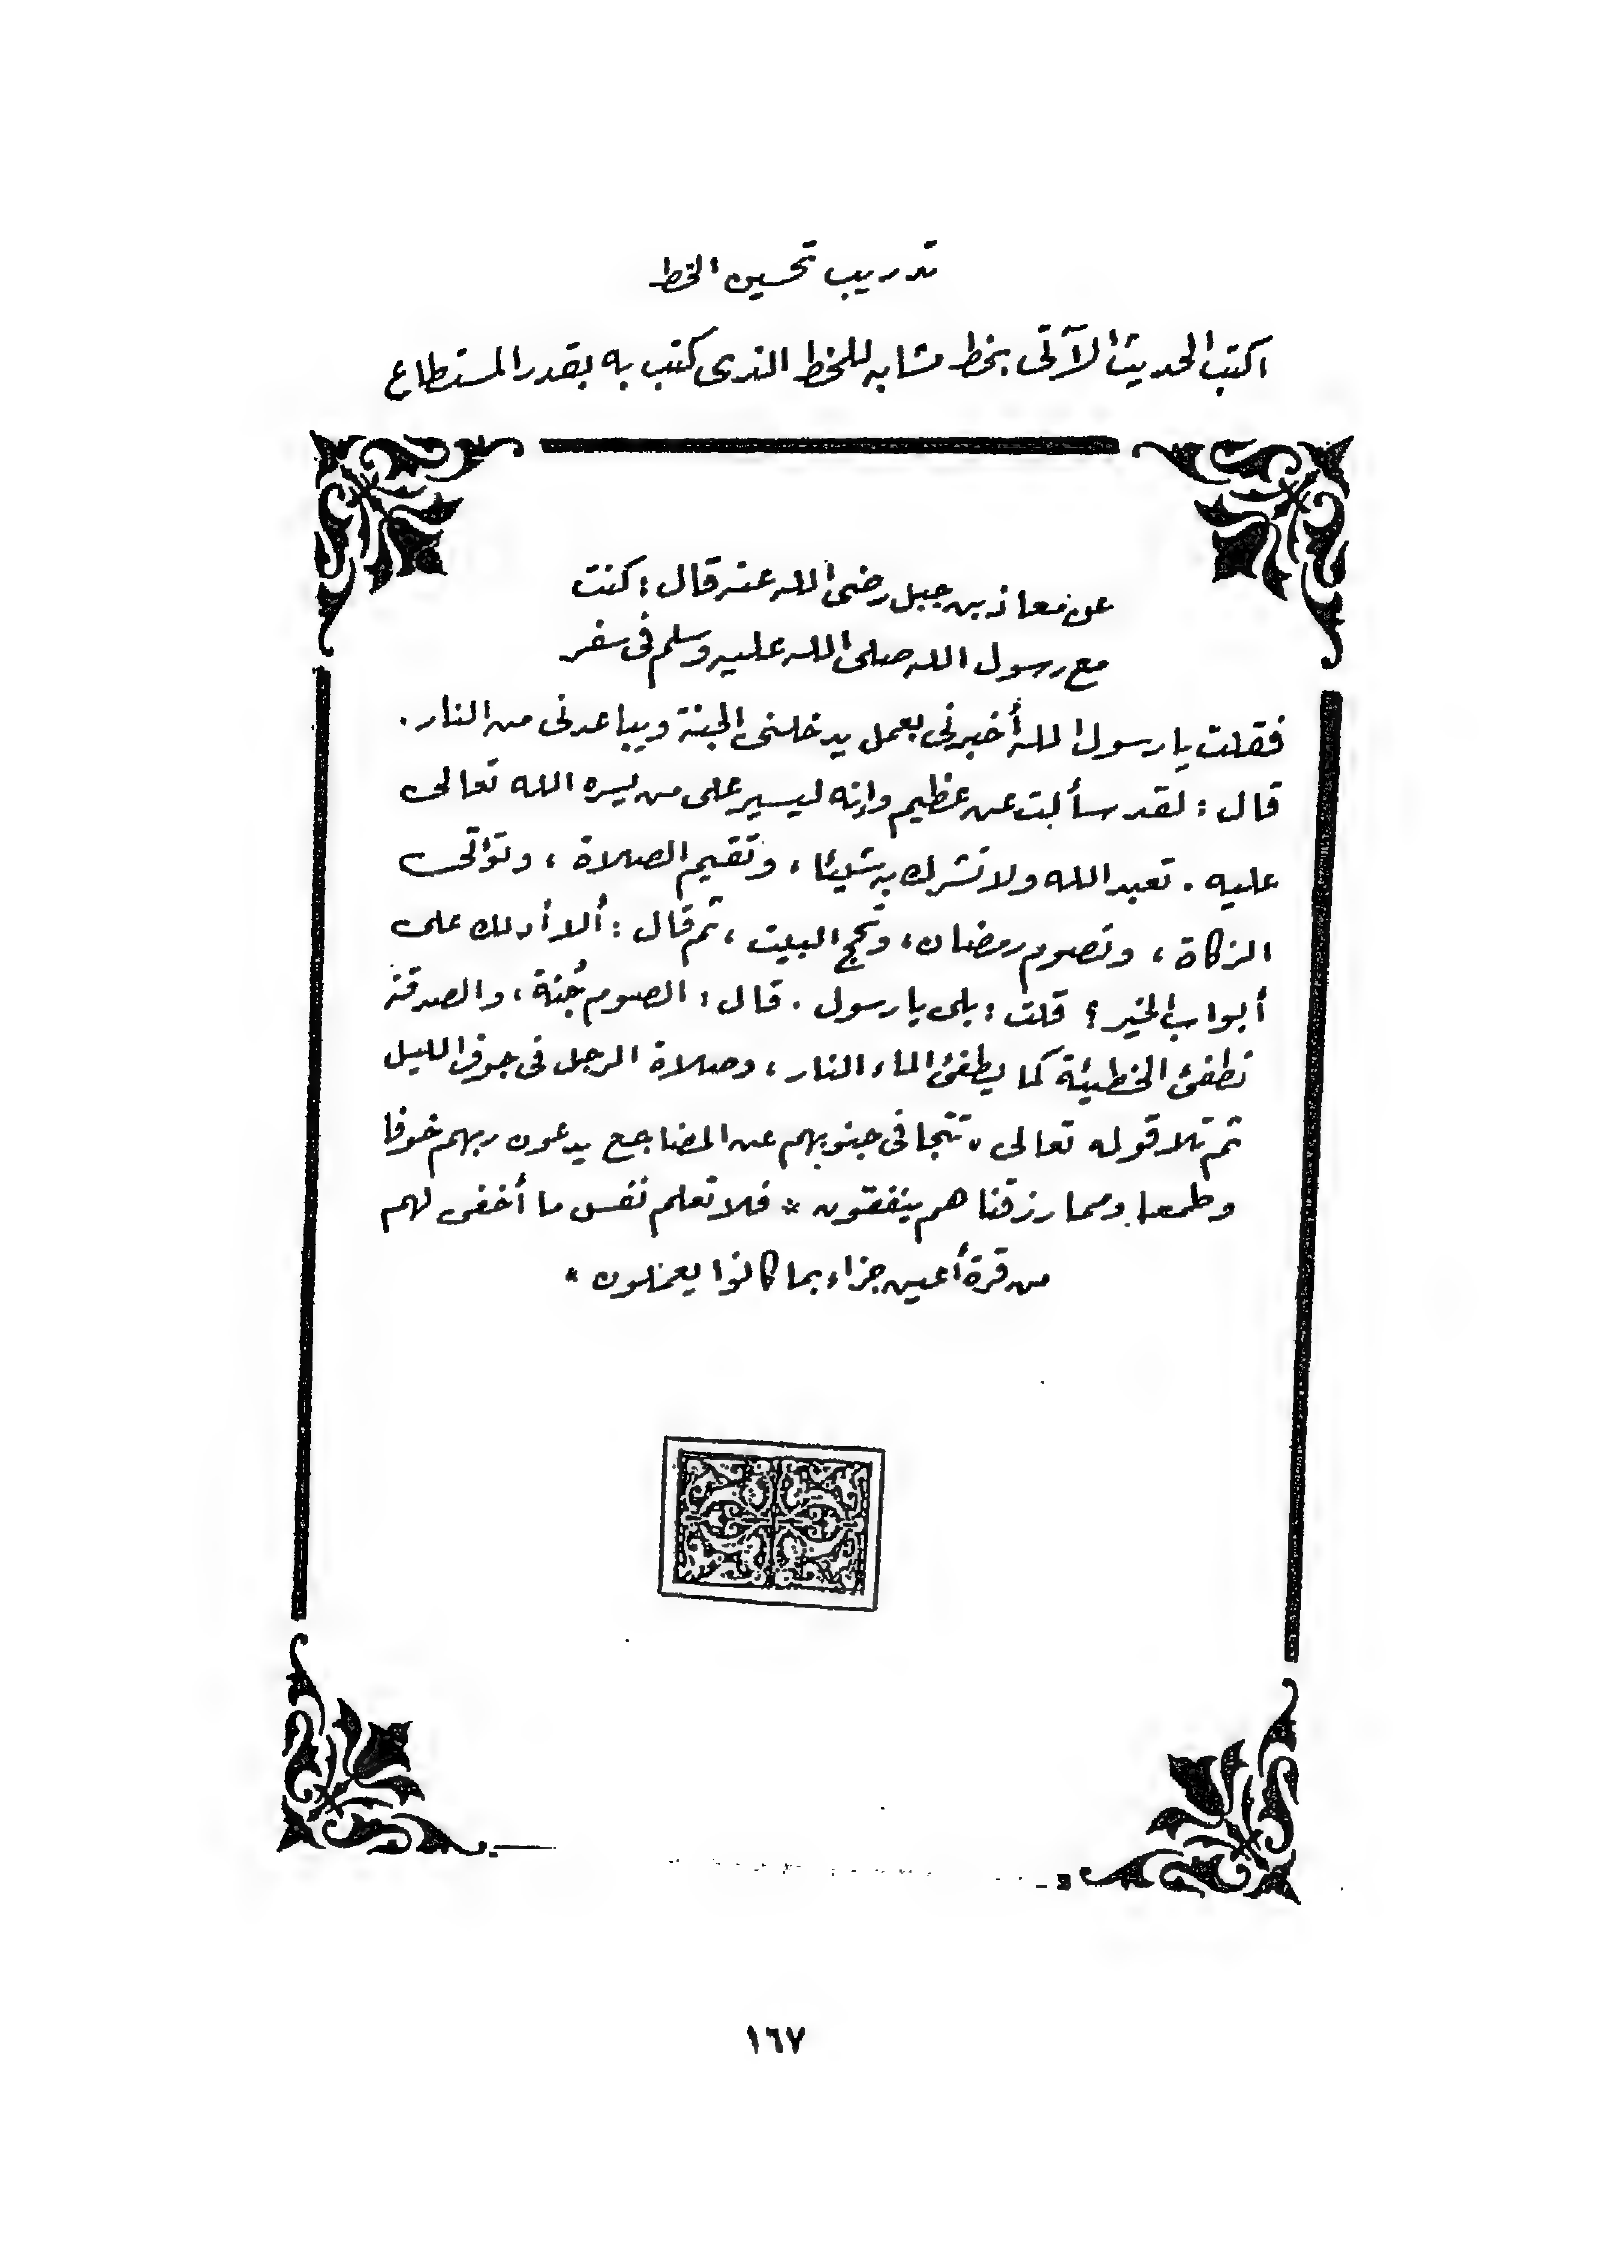 تدريب تحسين الخط
اكتب الحديث الآتى بخط مشابه للخط الذى كتب به بقدر المستطاع
عن معاذ بن جبل رضى الله عنه قال : كنت
مع رسول الله صلى الله عليه وسلم فى سفر
فقلت يا رسول الله أخبرنى بعمل يدخلنى الجنة ويباعدنى من النار .
قال : لقد سألت عن عظيم وإنه ليسير على من يسره الله تعالى
عليه . تعبد الله ولا تشرك به شيئا ، وتقيم الصلاة ، وتؤتى
الزكاة ، وتصوم رمضان ، وتحج البيت ، ثم قال : ألا أدلك على
أبواب الخير ؟ قلت : بلى يا رسول . قال : الصوم جُنة ، والصدقة
تطفئ الخطيئة كما يطفئ الماء النار ، وصلاة الرجل فى جوف الليل
ثم تلا قوله تعالى " تتجافى جنوبهم عن المضاجع يدعون ربهم خوفا
وطمعا ومما رزقنا هم ينفقون * فلا تعلم نفس ما أخفى لهم
من قرة أعين جزاء بما كانوا يعملون *
١٦٧